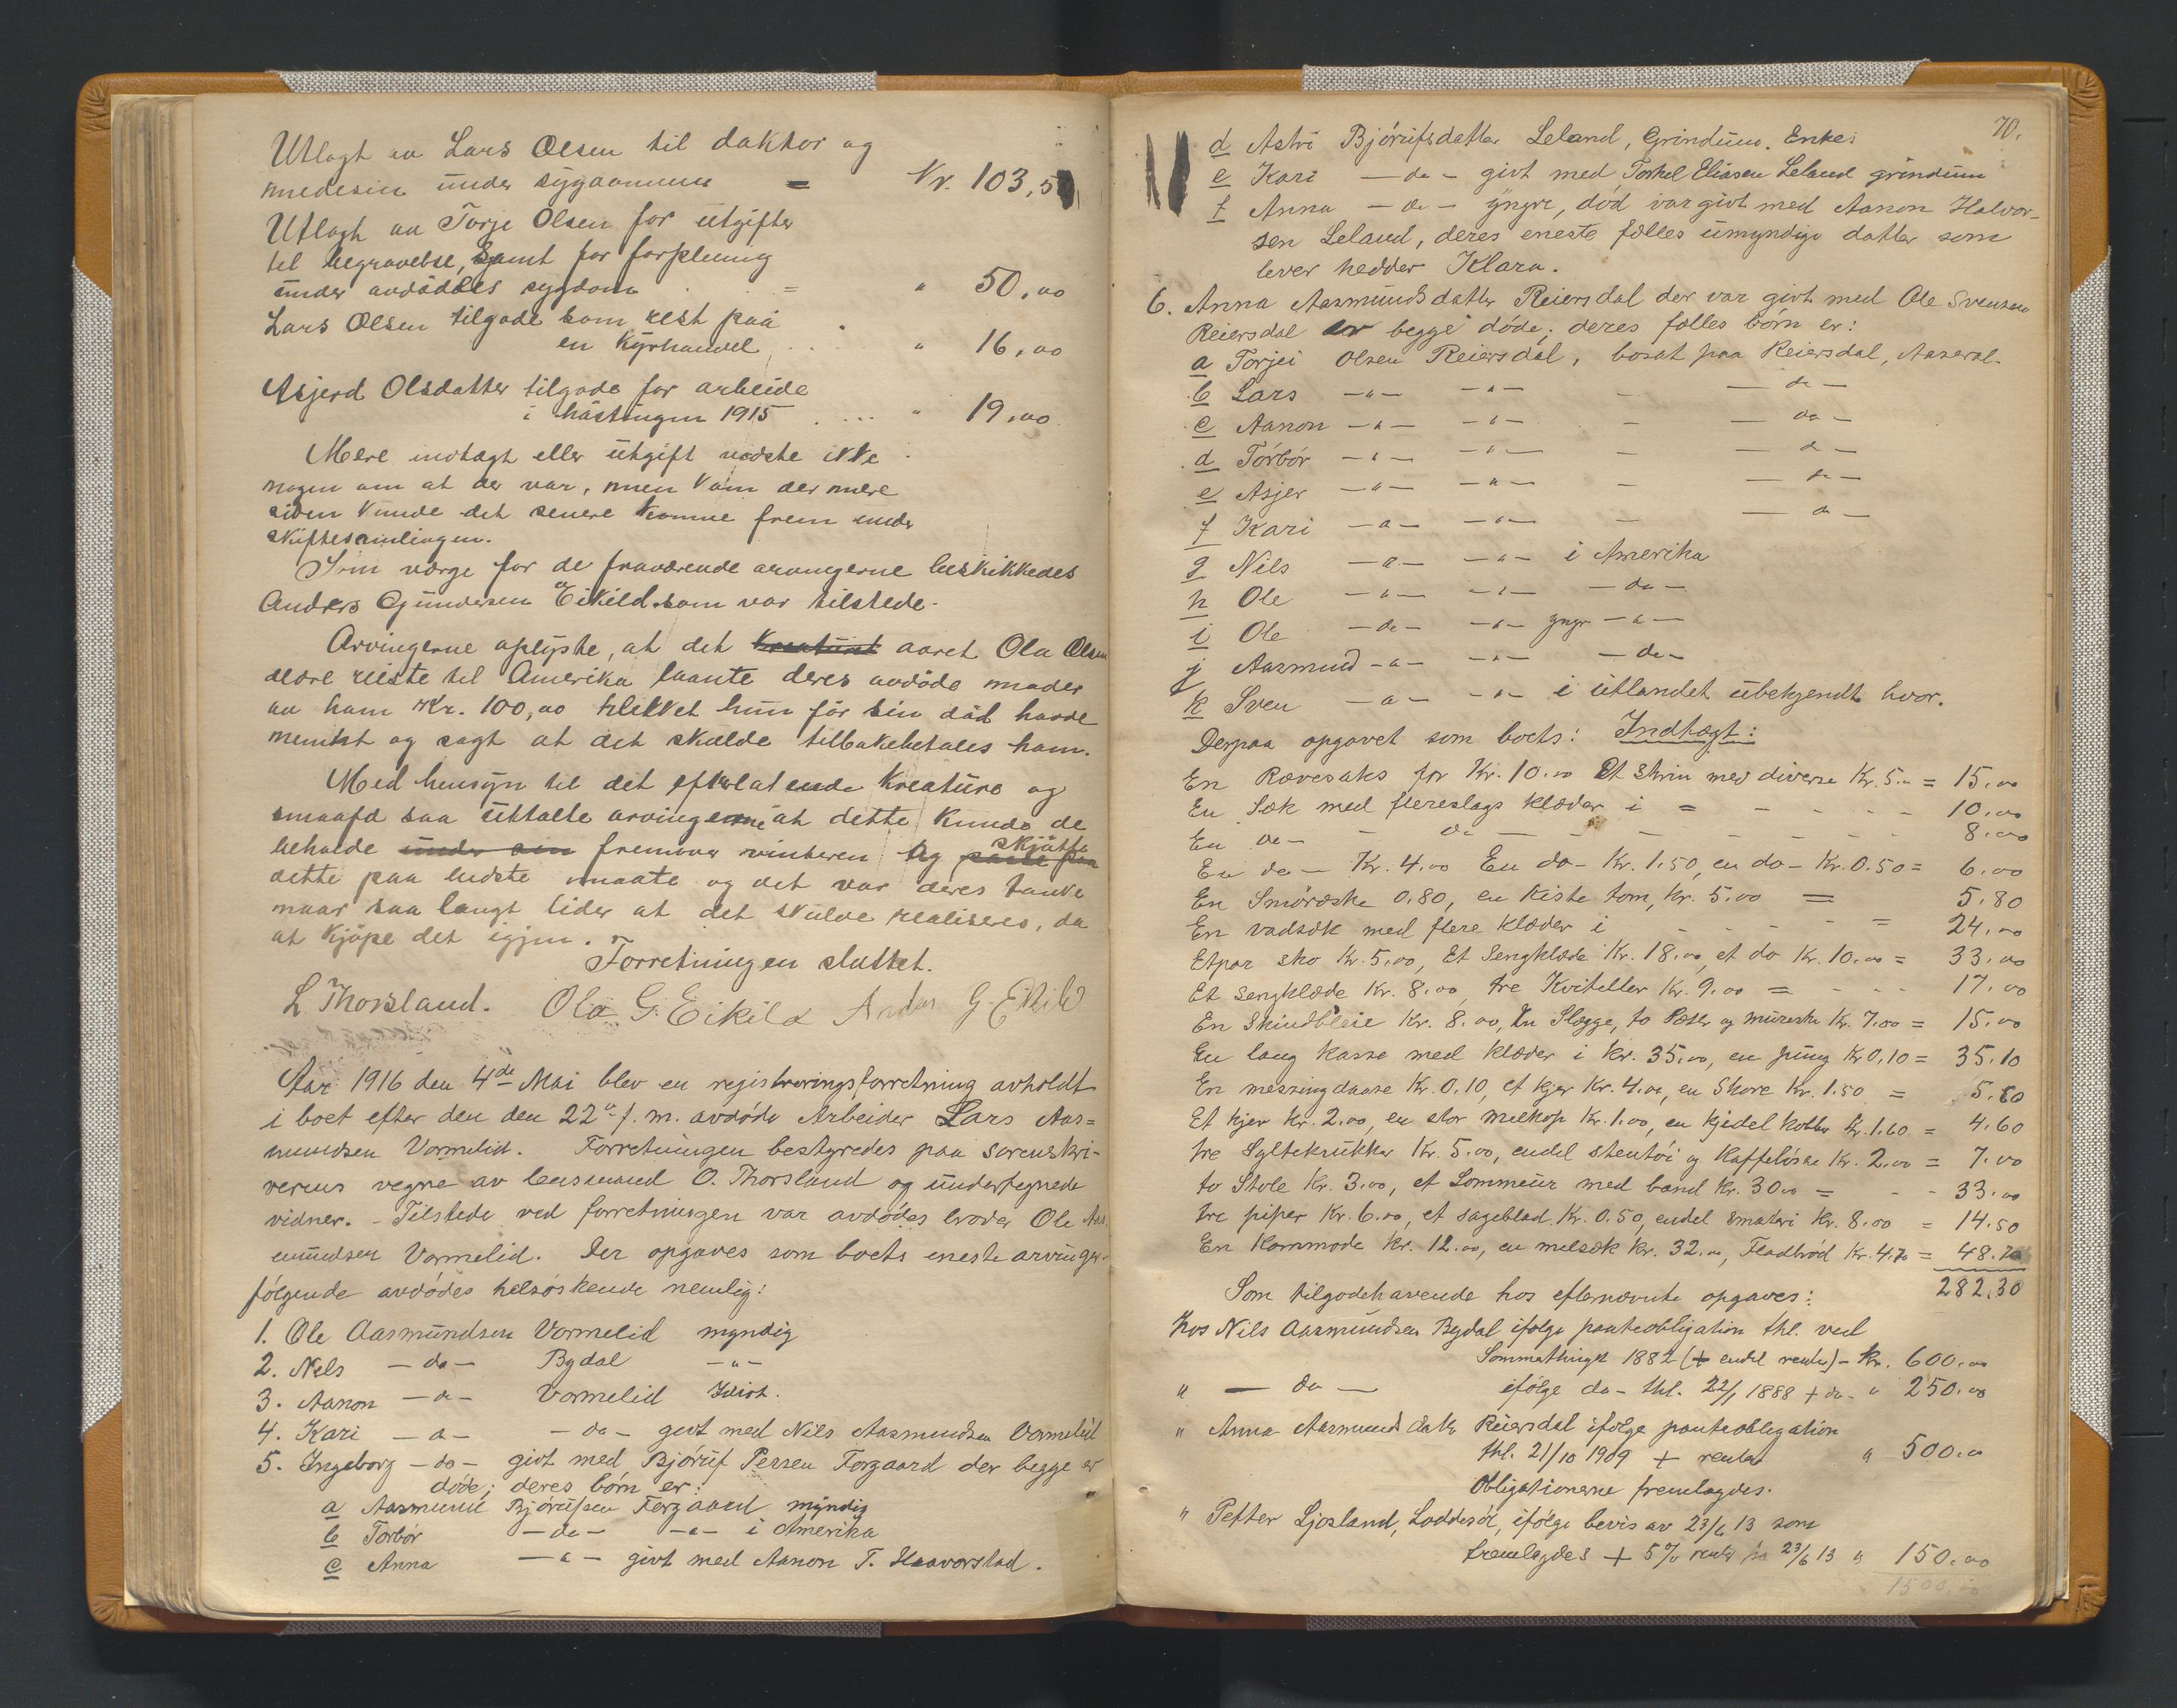 Utlagt av Lars Olsen til doktor og
medesin under sygdommen = Kr. 103,5
Utlagt av Torje Olsen for utgifter
til begravelse, samt for forpleining
under avdødes sygdom = " 50,00
Lars Olsen tilgode som rest paa
en kyrhandel . . . " 16,00
Asjerd Olsdatter tilgode for arbeide
i høstingen 1915 . . . " 19,00
Mere indtægt eller utgift vidste ikke
nogen om at der var, men kom der mere
siden kunde det senere komme frem under
skiftesamlingen.
Som værge for de fraværende arvingerne beskikkedes
Anders Gundersen Eikild som var tilstede.
Arvingerne oplyste, at det aaret Ola Olsen
ældre reiste til Amerika laante deres avdøde moder
av ham Kr. 100,00 hvilket hun før sin død havde
nemnt og sagt at det skulde tilbakebetales ham.
Med hensyn til det efterlatende kreature og
smaafæ saa uttalte arvingerne at dette kunde de
beholde under fremover vinteren og skjøtte
dette paa bedste maate og det var deres tanke
naar saa langt lider at det skulde realiseres, da
at kjøpe det igjen.
Forretningen sluttet.
L Thorsland. Ola G. Eikild Anders G. Eikild
Aar 1916 den 4de Mai blev en registreringsforretning avholdt
i boet efter den den 22de f. m. avdøde Arbeider Lars Aas=
mundsen Vormelid. Forretningen bestyredes paa sorenskri-
verens vegne av lensmand O. Thorsland og undertegnede
vidner. - Tilstede ved forretningen var avdødes broder Ole Aas
mundsen Vormelid. Der opgaves som boets eneste arvinger
følgende avdødes helsøskende nemlig:
1. Ole Aasmundsen Vormelid myndig
2. Nils - do - Bygdal - " -
3. Aanon - do - Vormelid Idiot.
4. Kari - " - - do - givt med Nils Aasmundsen Vormelid
5. Ingeborg - do - givt med Bjøruf Persen Forgaard der begge er
døde; deres børn er:
a Aasmund Bjørufsen Forgaard myndig
b Torbør - do - - " - i Amerika
c Anna - " - givt med Aanon T. Haavorstad.
70.
d Astri Bjørufsdatter Leland, Grindum. Enke
e Kari - do - givt med Torkel Eliasen Leland grindum
f Anna - do - yngre, død var givt med Aanon Halvor-
sen Leland, deres eneste fælles umyndige datter som
lever hedder Klara.
6. Anna Aasmundsdatter Reiersdal der var givt med Ole Svensen
Reiersdal er begge døde; deres fælles børn er:
a Torjei Olsen Reiersdal, bosat paa Reiersdal, Aaseral.
b Lars - " - - " - - - do -
c Aanon - " - - " - - - do -
d Torbør - " - - " - - - do -
e Asjer - " - - " - - - do -
f Kari - " - - " - - - do -
g Nils - " - - " - i Amerika
h Ole - " - - " - - do -
i Ole - do - - " - yngr - " -
j Aasmund - " - - " - - do -
k Sven - " - - " - i utlandet ubekjendt hvor.
Derpaa opgavet som boets: Indtægt:
En Rævesaks for Kr. 10.00 Et Skrin med diverse Kr. 5.- = 15.00
En Sæk med flereslags klæder i = - - - 10.00
En do - - do - - - - 8.00
En do - Kr. 4.00 En do - Kr. 1.50, en do - Kr. 0.50 = 6.00
En Smørøske 0.80, en Kiste tom, Kr. 5.00 = 5.80
En vadsæk med flere klæder i - - - = 24.00
Etpar sko Kr. 5.00, Et Sengklæde Kr. 18.00, et do Kr. 10.00 = 33.00
Et sengklæde Kr. 8.00, tre Kvitteller Kr. 9.00 = - - - 17.00
En Skindbleie Kr. 8.00, En Slægge, to og Kr. 7.00 = 15.00
En lang kasse med klæder i Kr. 35.00, en pung Kr 0.10 = 35.10
En messingdaase Kr. 0.10, et kjer Kr. 4.00, en Kr. 1.50 = 5.60
Et kjer Kr. 2.00, en stor melkop Kr. 1.00, en kjedel kobber Kr. 1.60 = 4.60
tre Syltekrukker Kr. 5.00, endel stentøi og Kaffeløsre Kr. 2.00 = 7.00
to Stole Kr. 3.00, et Lommeur med baand Kr. 30.00 = - - 33.00
tre piper Kr. 6.00, et sageblad Kr. 0.50, endel smaateri Kr. 8.00 = 14.50
En Kommode Kr. 12.00, en melsæk Kr. 32.00, Fladbrød Kr. 4.70 = 48.70
282.30
Som tilgodehavende hos efternævnte opgaves:
Hos Nils Aasmundsen Bygdal ifølge panteobligation thl. ved
Sommerthinget 1882 (+ endel renter) - Kr. 600.00
" - do - ifølge do - thl. 22/1 1888 + do - " 250.00
" Anna Aasmundsdatter Reiersdal ifølge panteobligation
thl. 21/10 1909 + renter " 500.00
Obligationerne fremlagdes.
" Petter Ljosland, Loddesøl, ifølge bevis av 23/6 13 som
fremlagdes + 5 % renter fra 23/6 13 " 150.00
1500.00